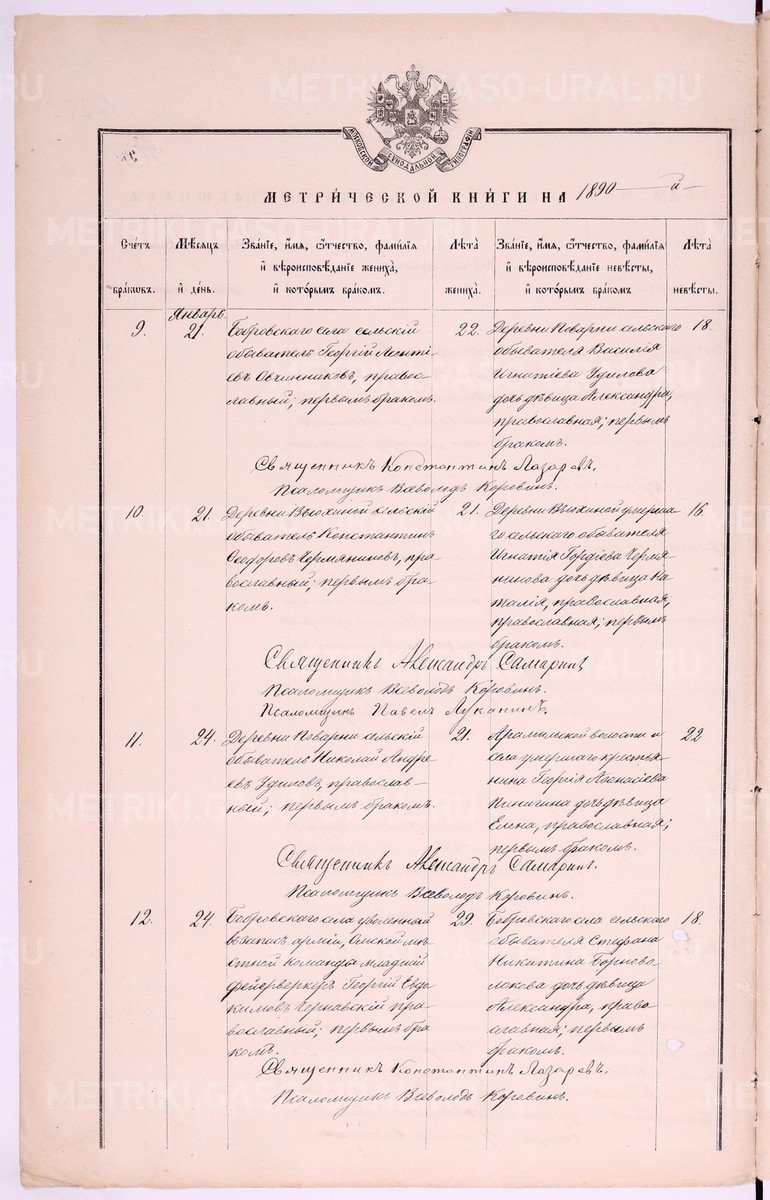 METRIKI.GASO-URAL.RU
МОСКОВСКОЙ СѴНОДАЛЬНОЙ ТИПОГРАФІИ
МЕТРИ́ЧЕСКОЙ КНИ́ГИ НА 1890 й
Сче́тъ бра́кѡвъ.
Мѣ́сяцъ и҆ де́нь.
Зва́нїе, и҆́мя, ѻ҆́тчество, фами́лїя и҆ вѣроисповѣ́данїе жениха̀, и҆ кото́рымъ бра́комъ.
Лѣ́та жениха̀.
Зва́нїе, и҆́мя, ѻ҆́тчество, фами́лїя и҆ вѣроисповѣ́данїе невѣ́сты, и҆ кото́рымъ бра́комъ
Лѣ́та невѣ́сты.
Январь.
9.
21.
Бобровскаго села сельскій
обыватель Георгій Леонті-
евъ Овчинниковъ, право-
славный; первымъ бракомъ.
22.
Деревни Поварни сельскаго
обывателя Василія
Игнатіева Удилова
дочь дѣвица Александра,
православная; первымъ
бракомъ.
18.
Священникъ Константинъ Лазаревъ.
Псаломщикъ Всеволодъ Коровинъ.
10.
21.
Деревни Вьюхиной сельскій
обыватель Константинъ
Ѳеодоровъ Чермяниновъ, пра-
вославный; первымъ бра-
комъ.
21.
Деревни Вьюхиной умерша-
го сельскаго обывателя
Игнатія Гордіева Чермя-
нинова дочь дѣвица На-
талія, православная;
православная; первымъ
бракомъ.
16.
Священникъ Александръ Самаринъ
Псаломщикъ Всеволодъ Коровинъ.
Псаломщикъ Павелъ Луканинъ.
11.
24.
Деревни Поварни сельскій
обыватель Николай Андре-
евъ Удиловъ, православ-
ный; первымъ бракомъ.
21.
Арамильской волости и
села умершаго крестья-
нина Георгія Аѳанасіева
Пинигина дочь дѣвица
Елена, православная;
первымъ бракомъ.
22
Священникъ Александръ Самаринъ.
Псаломщикъ Всеволодъ Коровинъ.
12.
24.
Бобровскаго села уволенный
въ запасъ арміи, Омской мѣ-
стной команды младшій
фейерверкеръ Георгій Евдо-
кимовъ Чернавскій пра-
вославный; первымъ бра-
комъ.
29.
Бобровскаго села сельскаго
обывателя Стефана
Никитина Черново-
локова дочь дѣвица
Александра, право-
славная; первымъ
бракомъ.
18.
Священникъ Константинъ Лазаревъ.
Псаломщикъ Всеволодъ Коровинъ.